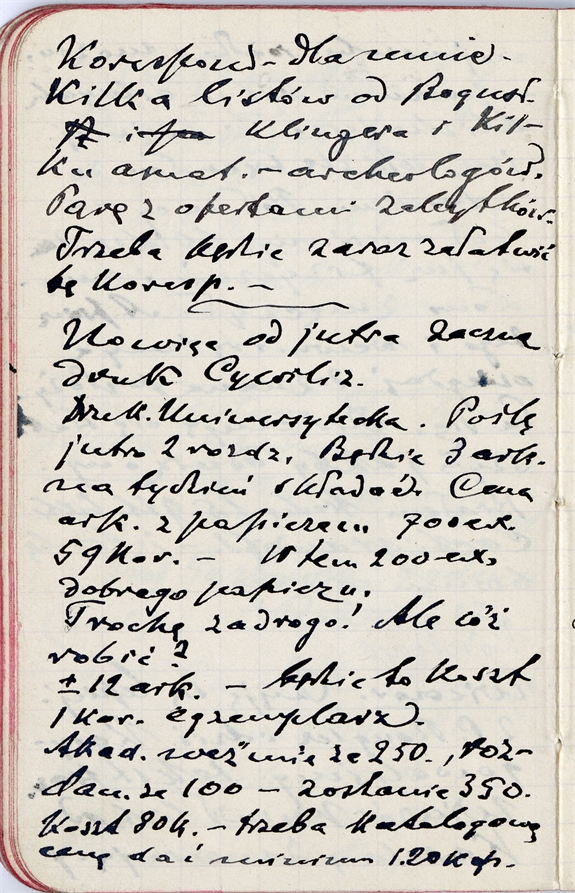 Korespond- dla mnie.
Kilka listów od Bogusł.
i Klingera i Kil-
ku amat.- archeologów.
Parę z ofertami zabytków.
Trzeba będzie zaraz załatwić
tę Koresp. -
No więc od jutra zaczną
druk Cywiliz.
Druk. Uniwersytecka. Poślę
jutro 2 rozdz. Będzie 3 ark.
na tydzień składać. Cena
ark. z papierem 700 ex.
59 Kor. - W tem 200 ex.
dobrego papieru.
Trochę za drogo! Ale cóż
robić?
± 12 ark. - będzie to Koszt
1 Kor. egzemplarz.
Akad. weźmie ze 250., roz-
dam. ze 100 - zostanie 350.
Koszt 80 h. - trzeba Katalogową
cenę dać minimum 1.20 Kop.